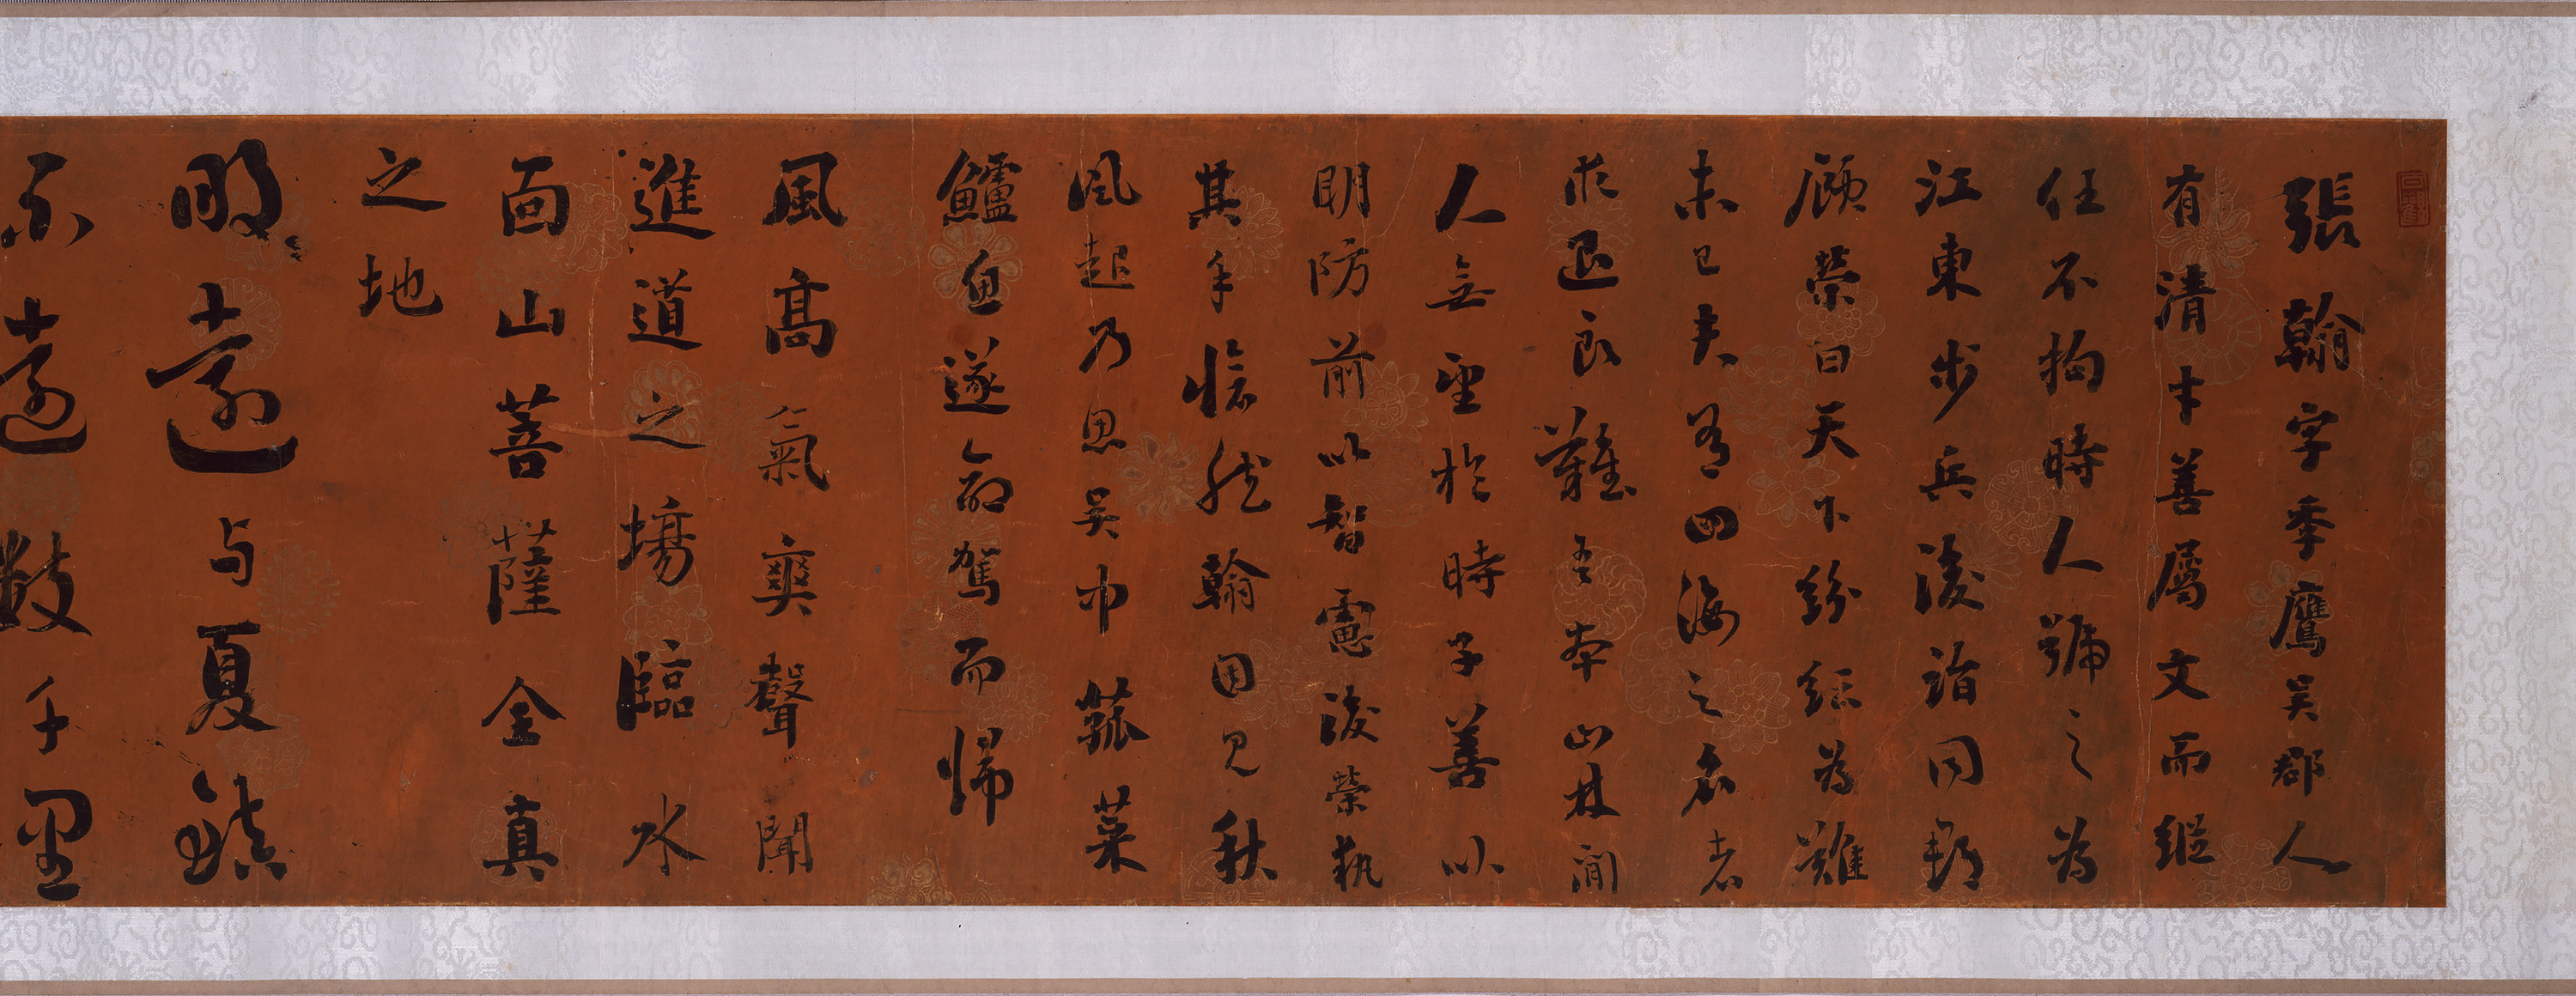 張翰字季鷹吳郡人
有清才善屬文而縱
任不拘時人號之為
江東步兵後謂同郡
顧榮曰天下紛紜為難
未已夫有四海之名者
求退良難吾本山林間
人無望於時子善以
明防前以智慮後榮執
其手愴然翰因見秋
風起乃思吳中菰菜
鱸魚遂命駕而歸
風高氣爽聲聞
進道之場臨水
面山菩薩全真
之地
明遠与夏鎮
不遠數千里